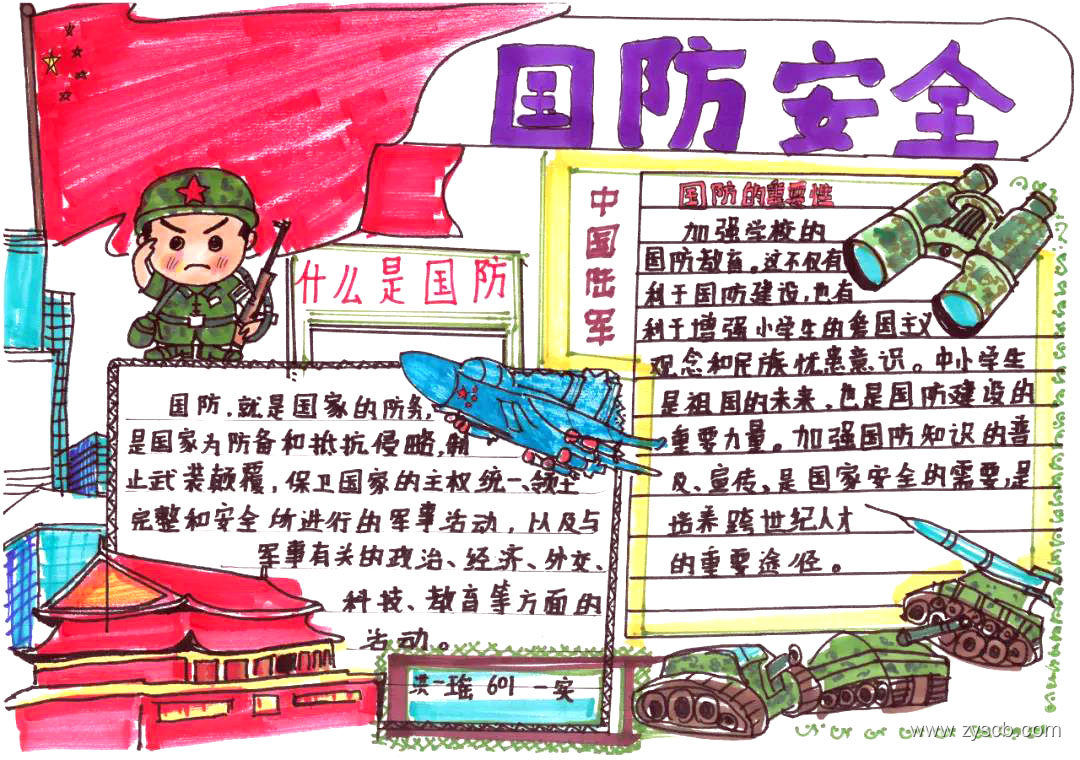 国防安全
什么是国防
国防，就是国家的防务，
是国家为防备和抵抗侵略，制
止武装颠覆，保卫国家的主权统一、领土
完整和安全所进行的军事活动，以及与
军事有关的政治、经济、外交、
科技、教育等方面的
活动。
中国陆军
国防的重要性
加强学校的
国防教育。这不仅有
利于国防建设，也有
利于增强小学生的爱国主义
观念和民族忧患意识。中小学生
是祖国的未来，也是国防建设的
重要力量。加强国防知识的普
及、宣传、是国家安全的需要，是
培养跨世纪人才
的重要途径。
洪一瑶 601 一实
www.zyscb.com